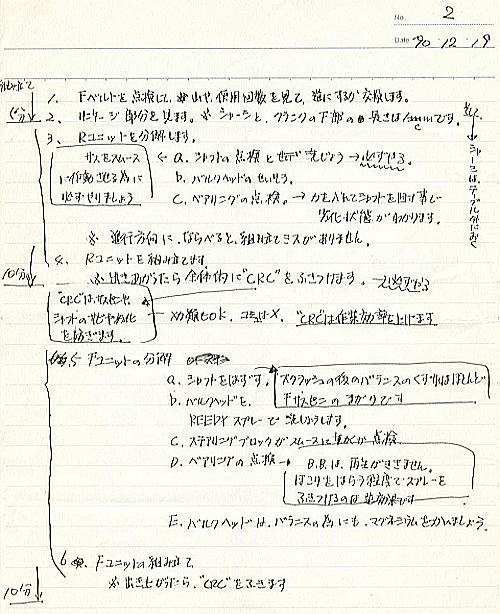 No. 2
Date 90・12・19
1. Fベルトを点検して、山や、使用回数を見て、逆にするか交換します。
2. リンケージ部分を見ます。※ シャーシと、クランクの下部の長さは1mmです。
3. Rユニットを分解します。
サスをスムース
に作動させる為に
必ずやりましょう
a. シャフトの点検と
b. バルクヘッドのせいそう。
c. ベアリングの点検。→ 力を入れてシャフトを回す事で
劣化状態がわかります。
※ 進行方向に、ならべると、組み立てミスがありません。
4. Rユニットを組み立てます。
10分
※ 出きあがったら全体的に"CRC"をふきつけます。
"CRC"は
シャフトの
を防ぎます。
"CRC"は作業効率を上げます
5 Fユニットの分解
a. シャフトをはずす。
クラッシュの後のバランスのくずれはほとんど
Fサスピンのまがりです
b. バルクヘッドを、
REEDYスプレーで洗じょうします。
c. ステアリングブロックがスムースに動くか点検
D. ベアリングの点検→
B.B.は、再生ができません。
ほこりをはらう程度でスプレーを
ふきつけるのは逆効果です
E. バルクヘッドは、バランスの為にも、マグネシウムをつかいましょう。
6 Fユニットの組み立て
10分
※ 出き上がったら、"CRC"をふきます